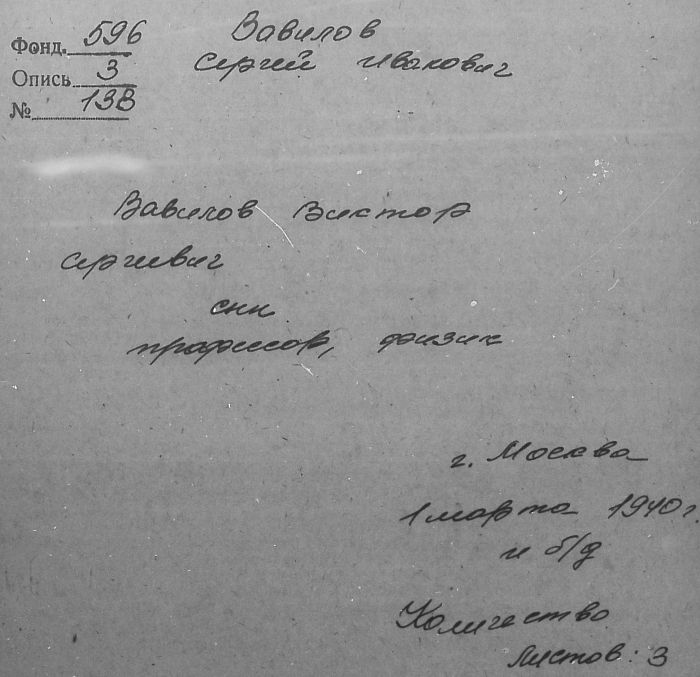 Фонд. 596
Опись 3
№ 138
Вавилов
Сергей Иванович
Вавилов Виктор
Сергиевич
сын
профессор, физик
г. Москва
1 марта 1940 г.
и б/д
Количество
листов: 3